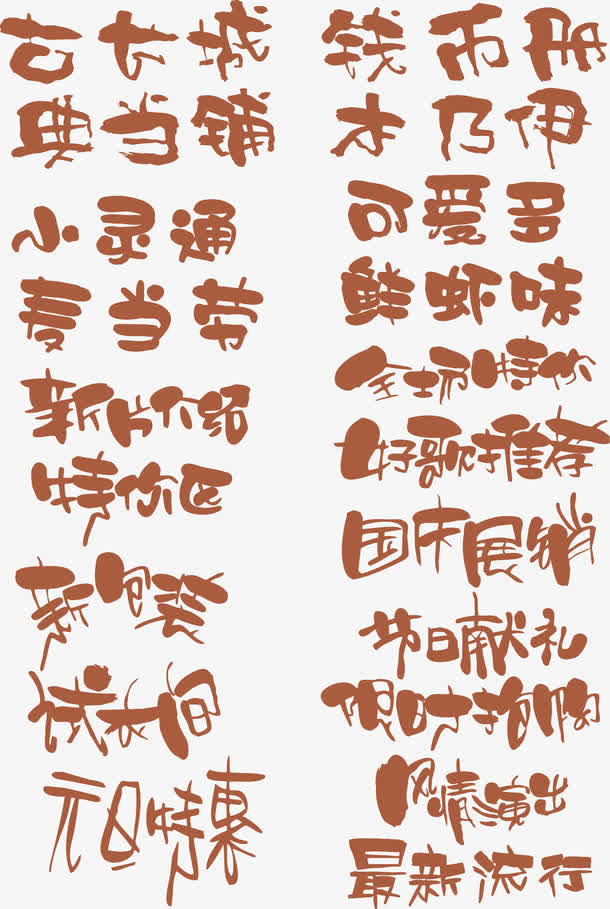 古长城
典当铺
小灵通
麦当劳
新片介绍
特价区
新包装
试衣间
元旦特惠
钱币册
木乃伊
可爱多
鲜虾味
全场特价
好歌推荐
国庆展销
节日献礼
限时抢购
风情演出
最新流行